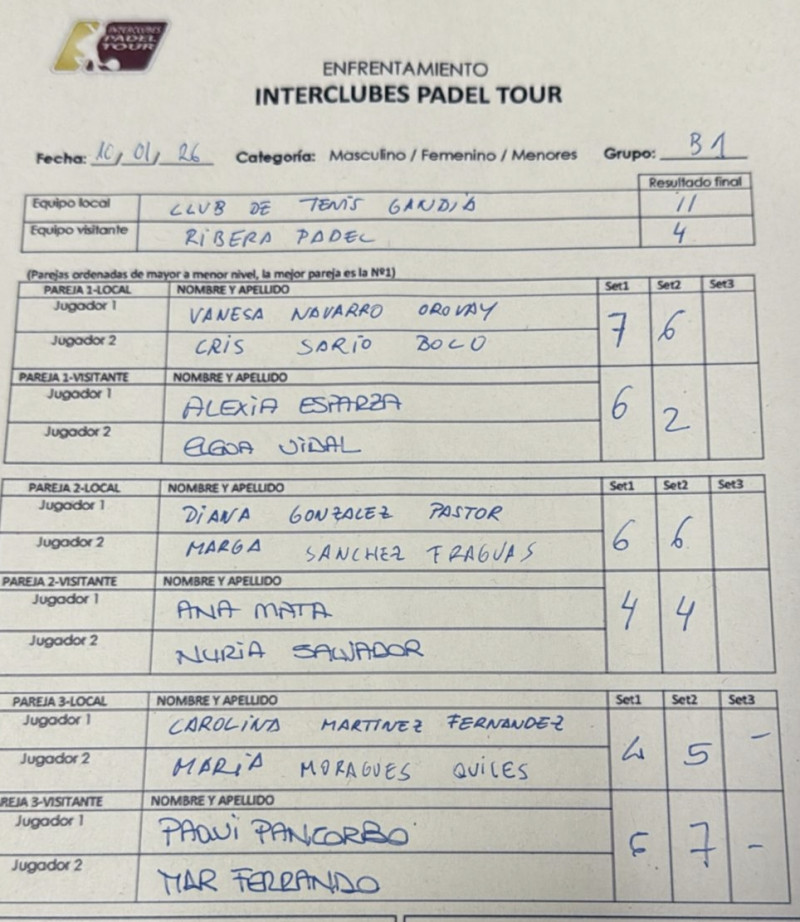 INTERCLUBES
PADEL
TOUR
ENFRENTAMIENTO
INTERCLUBES PADEL TOUR
Fecha: 10/01/26 Categoría: Masculino / Femenino / Menores Grupo: B1
Resultado final
Equipo local CLUB DE TENIS GANDIA 11
Equipo visitante RIBERA PADEL 4
(Parejas ordenadas de mayor a menor nivel, la mejor pareja es la Nº1)
PAREJA 1-LOCAL NOMBRE Y APELLIDO Set1 Set2 Set3
Jugador 1 VANESA NAVARRO OROVAY 7 6
Jugador 2 CRIS SARIO BOLO
PAREJA 1-VISITANTE NOMBRE Y APELLIDO
Jugador 1 ALEXIA ESPARZA 6 2
Jugador 2 VIDAL
PAREJA 2-LOCAL NOMBRE Y APELLIDO Set1 Set2 Set3
Jugador 1 DIANA GONZALEZ PASTOR 6 6
Jugador 2 MARGA SANCHEZ FRAGUAS
PAREJA 2-VISITANTE NOMBRE Y APELLIDO
Jugador 1 ANA MATA 4 4
Jugador 2 NURIA SALVADOR
PAREJA 3-LOCAL NOMBRE Y APELLIDO Set1 Set2 Set3
Jugador 1 CAROLINA MARTINEZ FERNANDEZ 4 5 -
Jugador 2 MARIA MORAGUES QUILES
REJA 3-VISITANTE NOMBRE Y APELLIDO
Jugador 1 PAQUI PANCORBO 6 7 -
Jugador 2 MAR FERRANDO